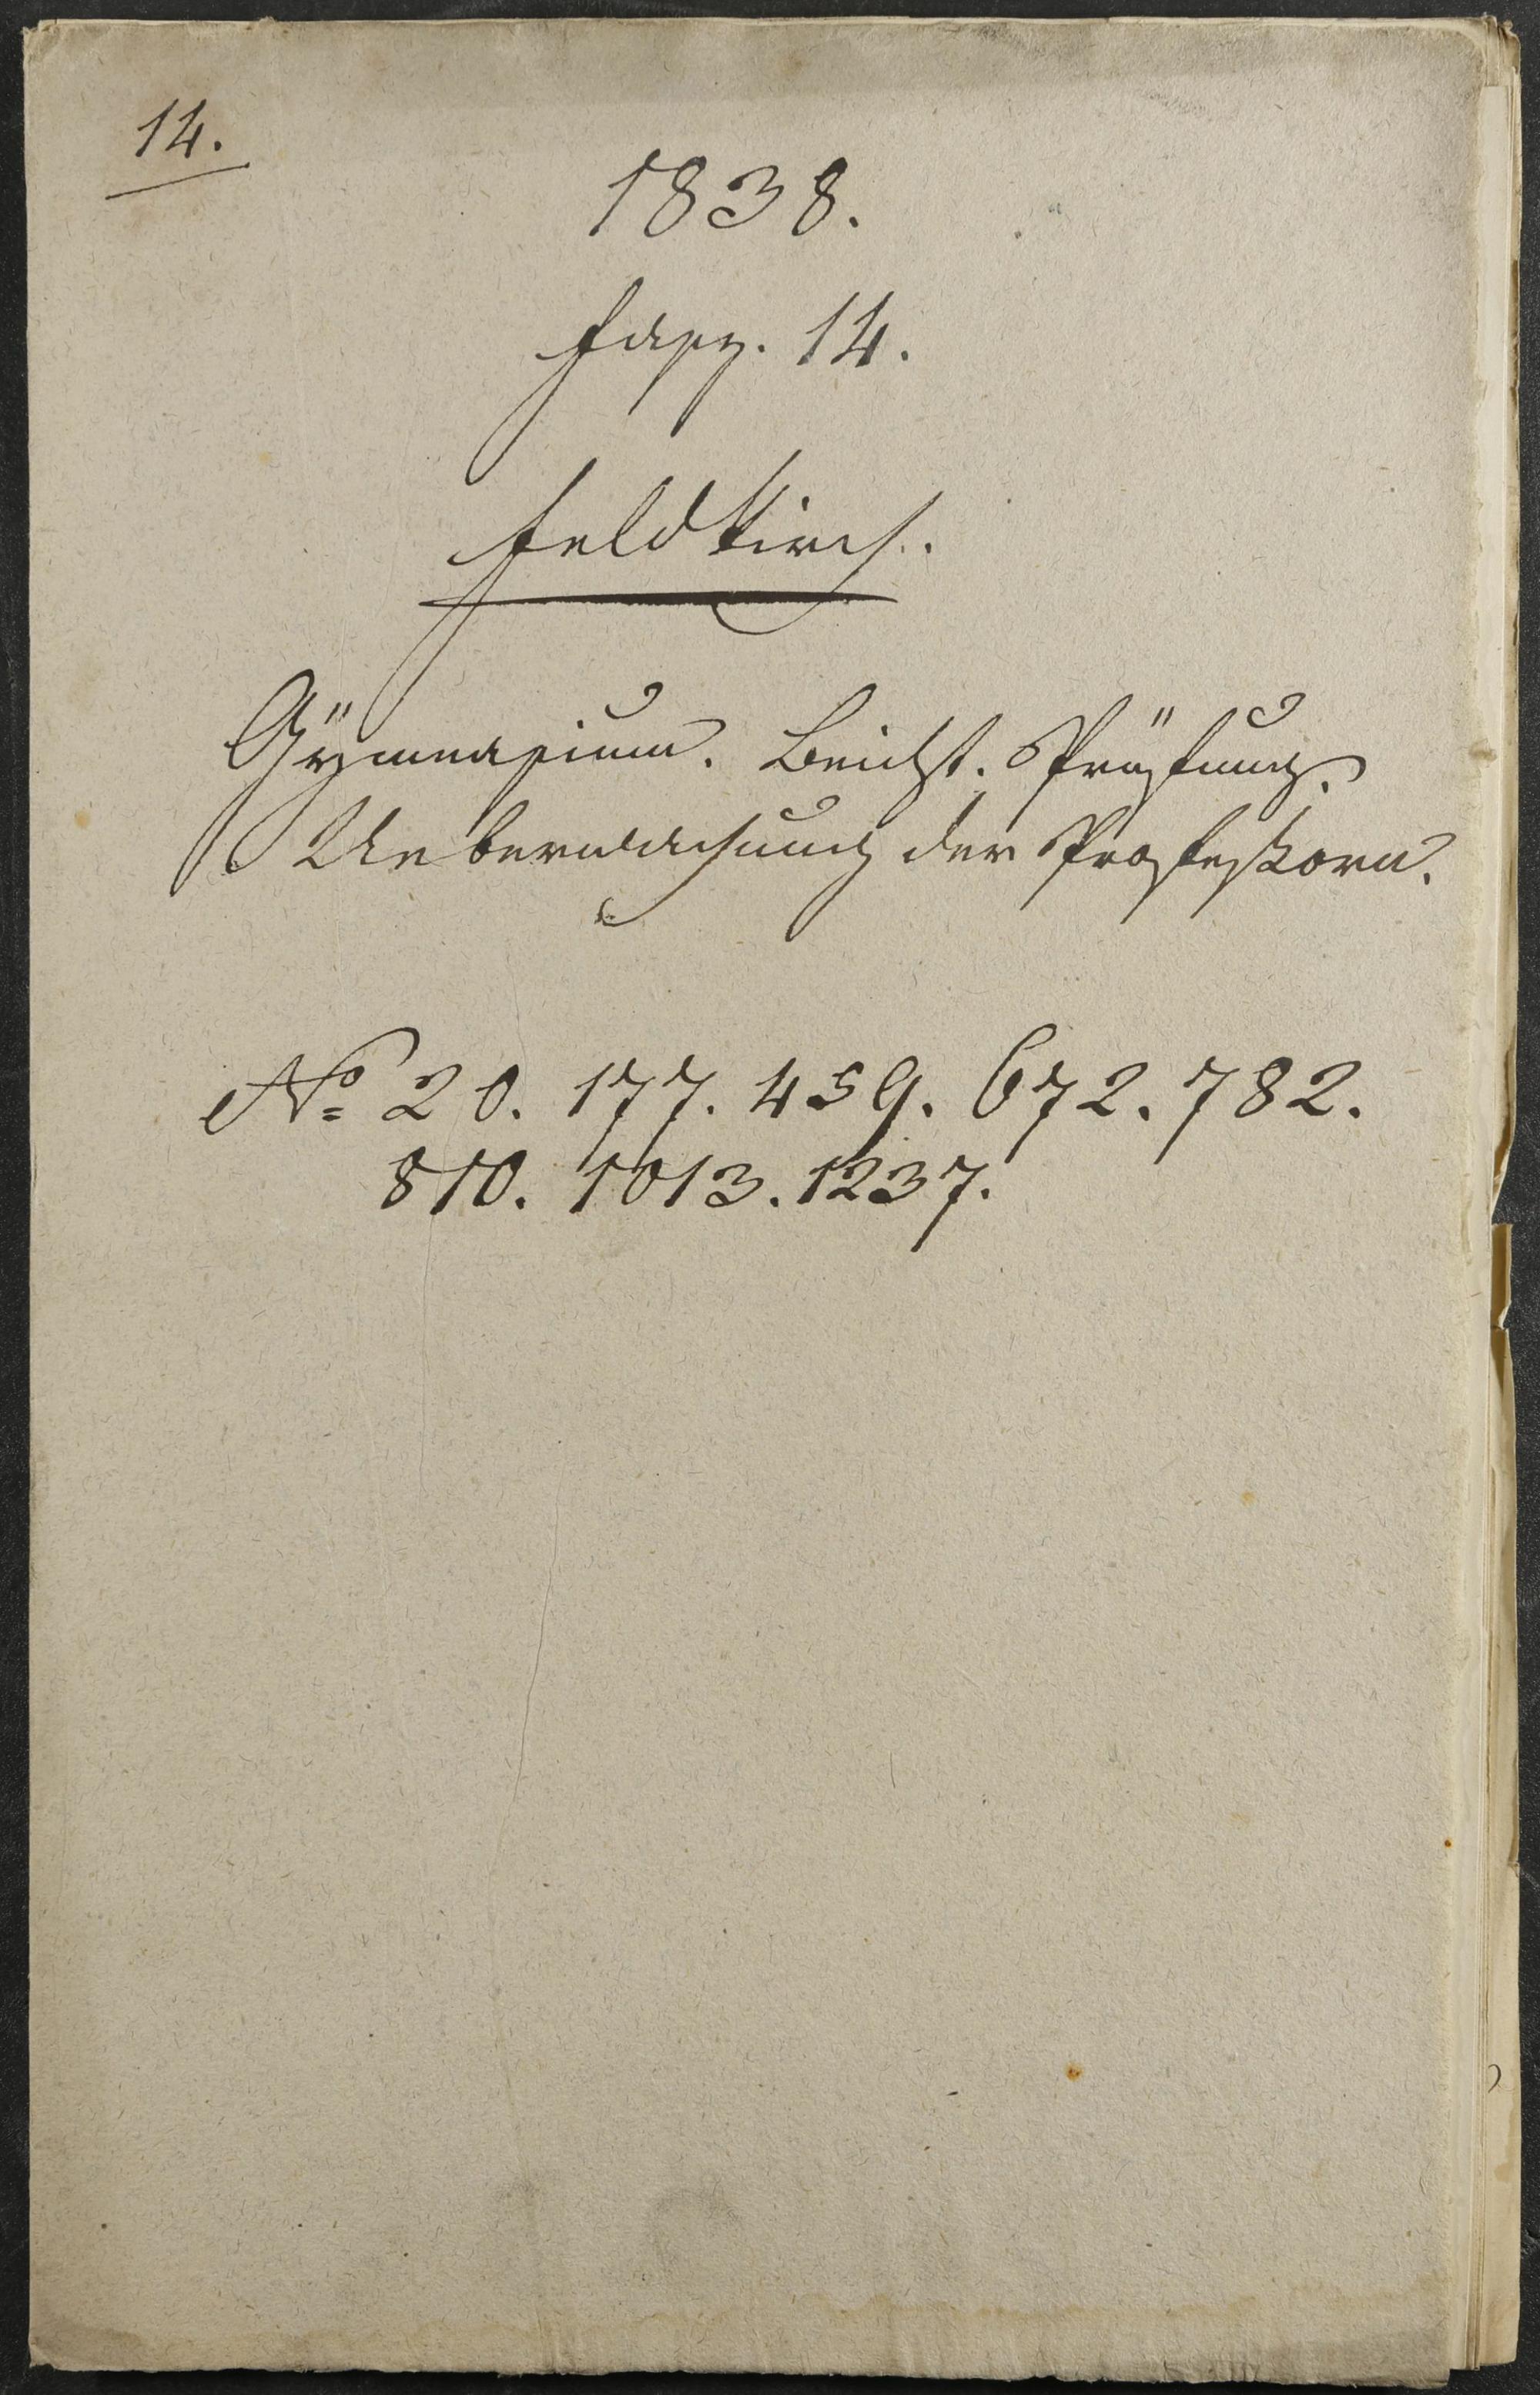 14.
1838.
Fasz. 14.
Feldkirch.
Gÿmnasium. Beicht. Prüfung.
Ueberwachung der Professorn.
No 20. 177. 459. 672. 782.
810. 1013. 1237.